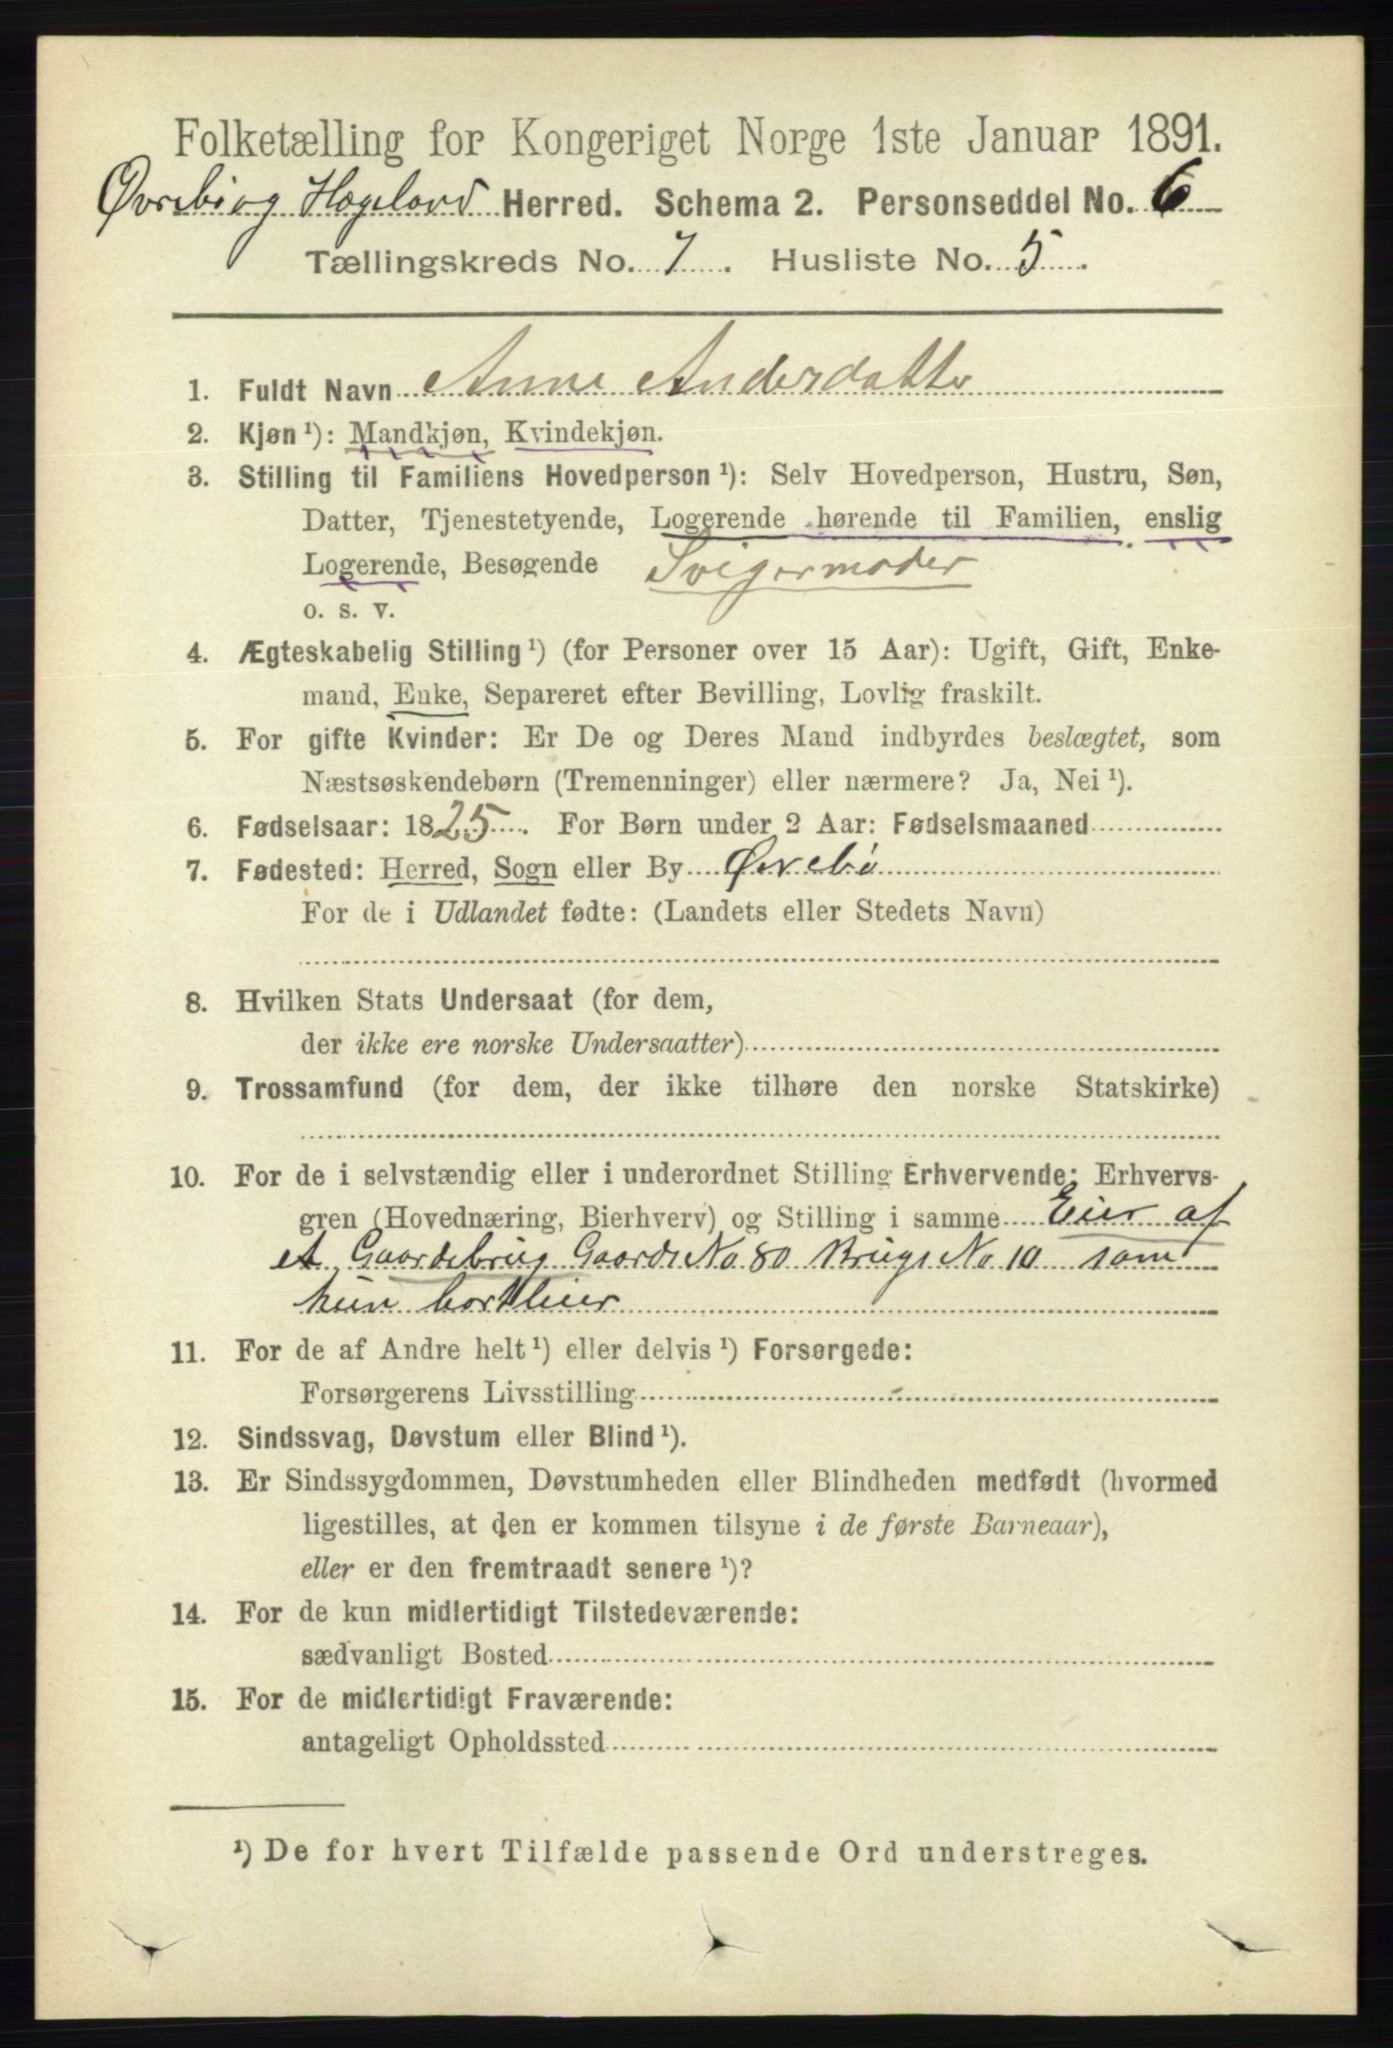 Folketælling for Kongeriget Norge 1ste Januar 1891.
Øvrebø og Hægeland Herred. Schema 2. Personseddel No. 6
Tællingskreds No. 7. Husliste No. 5.
1. Fuldt Navn Anne Andersdatter
2. Kjøn¹): Mandkjøn, Kvindekjøn.
3. Stilling til Familiens Hovedperson¹): Selv Hovedperson, Hustru, Søn,
Datter, Tjenestetyende, Logerende hørende til Familien, enslig
Logerende, Besøgende Svigermoder
o. s. v.
4. Ægteskabelig Stilling¹) (for Personer over 15 Aar): Ugift, Gift, Enke-
mand, Enke, Separeret efter Bevilling, Lovlig fraskilt.
5. For gifte Kvinder: Er De og Deres Mand indbyrdes beslægtet, som
Næstsøskendebørn (Tremenninger) eller nærmere? Ja, Nei¹).
6. Fødselsaar: 1825. For Børn under 2 Aar: Fødselsmaaned
7. Fødested: Herred, Sogn eller By Øvrebø
For de i Udlandet fødte: (Landets eller Stedets Navn)
8. Hvilken Stats Undersaat (for dem,
der ikke ere norske Undersaatter)
9. Trossamfund (for dem, der ikke tilhøre den norske Statskirke)
10. For de i selvstændig eller i underordnet Stilling Erhvervende: Erhvervs-
gren (Hovednæring, Bierhverv) og Stilling i samme Eier af
et Gaardsbrug Gaards No 80 Brugs No 10 som
hun bortleier
11. For de af Andre helt¹) eller delvis¹) Forsørgede:
Forsørgerens Livsstilling
12. Sindssvag, Døvstum eller Blind¹).
13. Er Sindssygdommen, Døvstumheden eller Blindheden medfødt (hvormed
ligestilles, at den er kommen tilsyne i de første Barneaar),
eller er den fremtraadt senere¹)?
14. For de kun midlertidigt Tilstedeværende:
sædvanligt Bosted
15. For de midlertidigt Fraværende:
antageligt Opholdssted
¹) De for hvert Tilfælde passende Ord understreges.